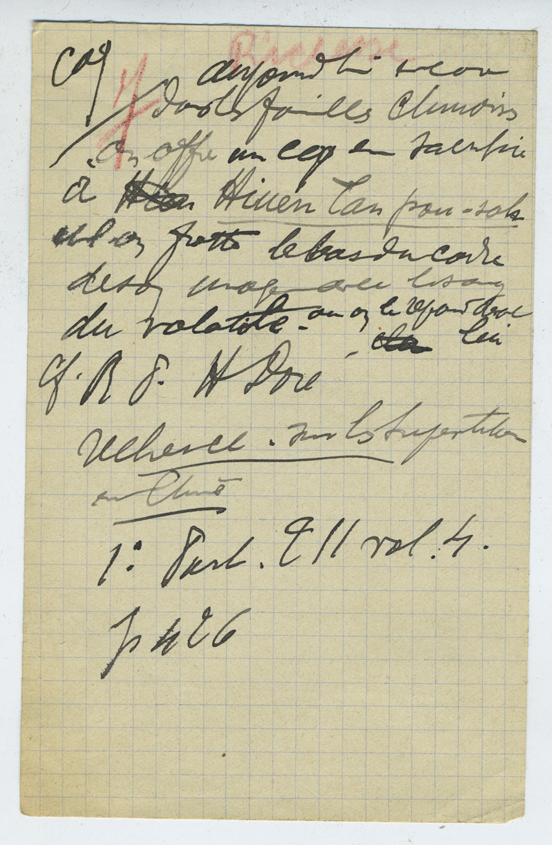 coq
aujourd'hui encore
dans les familles chinoises
on offre un coq en sacrifice
à Hiuen Tan pou-sah
et on frotte le bas du cadre
de son image avec le sang
du volatile - ou on le répand devant
lui
cf. R P. H Doré
Recherche. sur les superstitions
en Chine
1° Part. T II vol. 4.
p 426